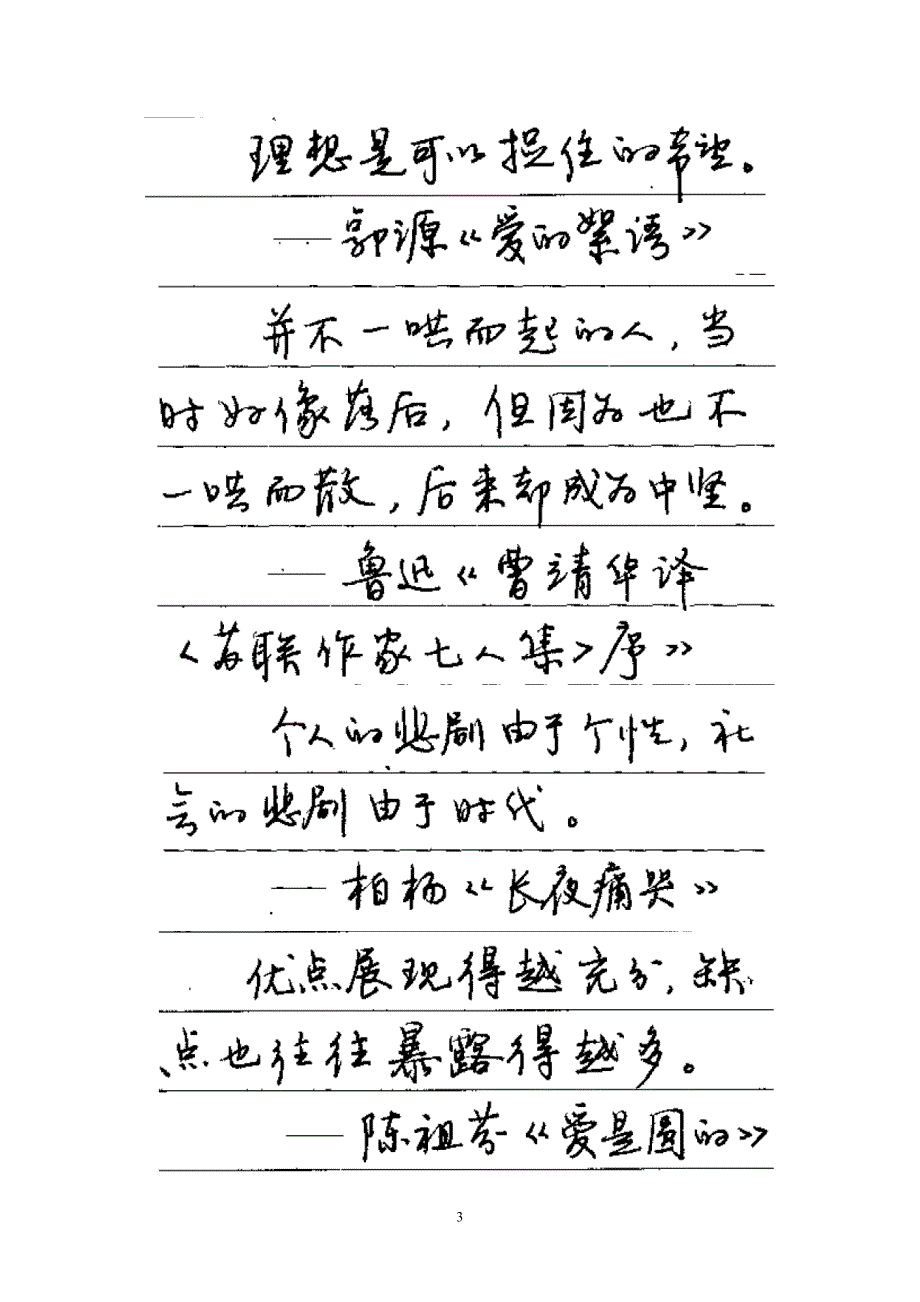 理想是可以捉住的希望。
——郭源《爱的絮语》
并不一哄而起的人，当
时好像落后，但因为也不
一哄而散，后来却成为中坚。
——鲁迅《曹靖华译
〈苏联作家七人集〉序》
个人的悲剧由于个性，社
会的悲剧由于时代。
——柏杨《长夜痛哭》
优点展现得越充分，缺
点也往往暴露得越多。
——陈祖芬《爱是圆的》
3